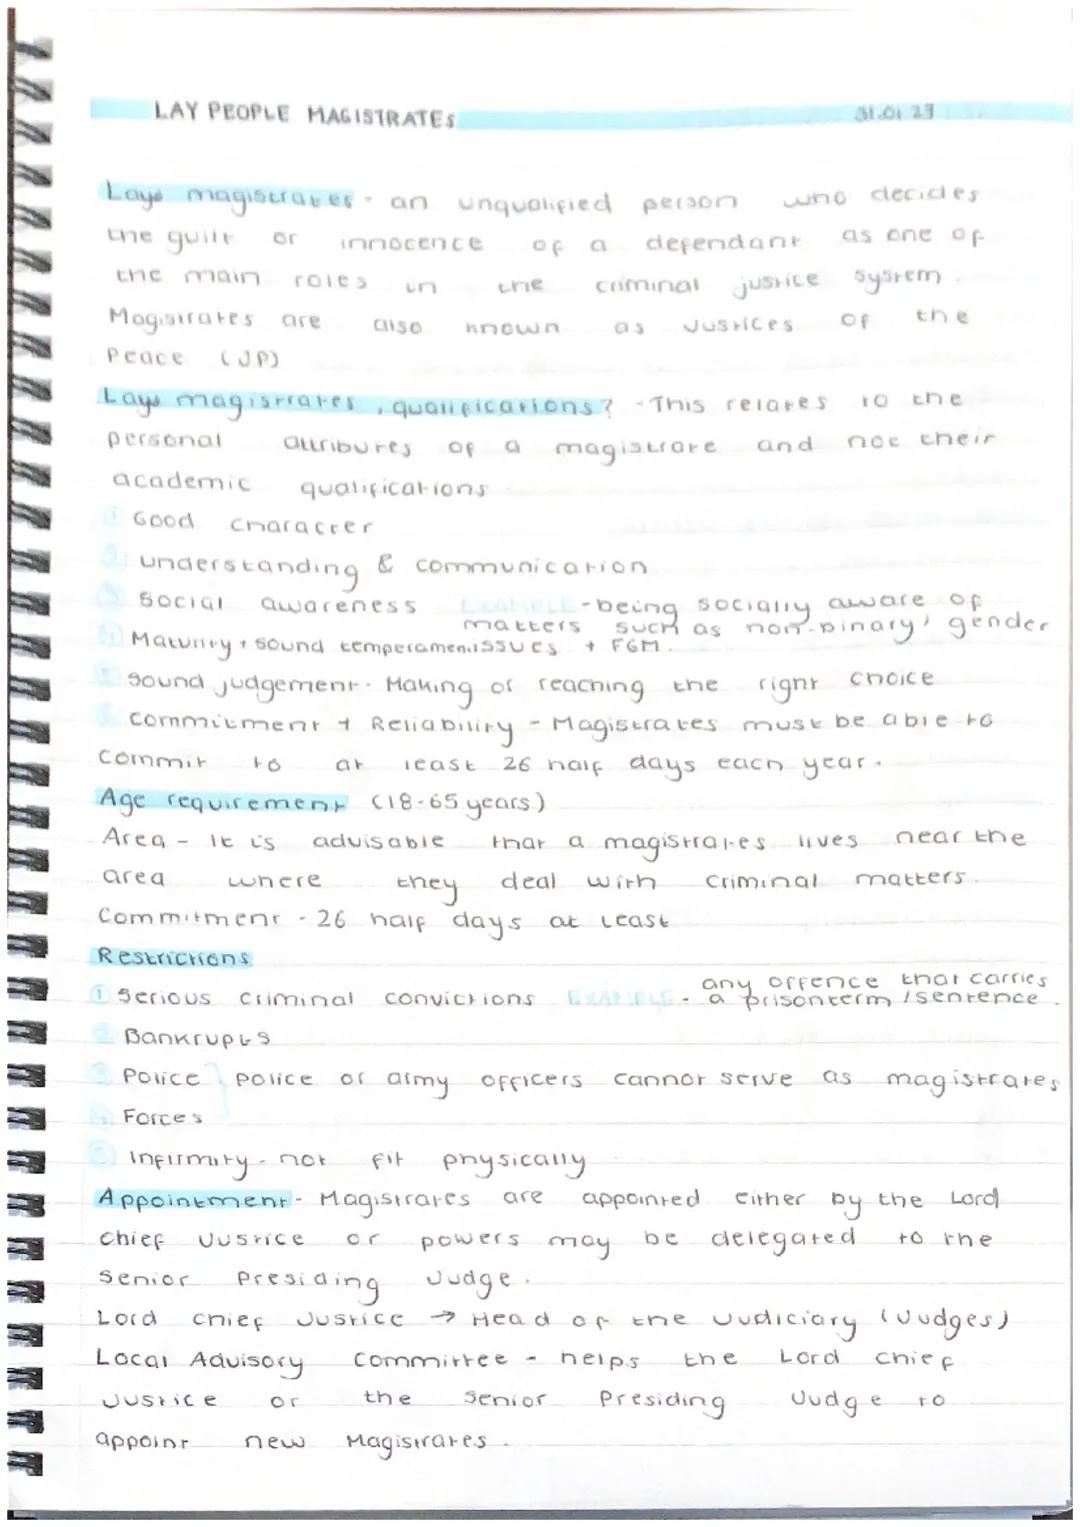 LAY PEOPLE MAGISTRATES 31.01 23
Lays magistrates - an unqualified person who decides
the guilt or innocence of a defendant as one of
the main roles in the criminal justice system.
Magistrates are also known as Justices of the
Peace (JP)
Lays magistrates, qualifications? - This relates to the
personal attributes of a magistrate and not their
academic qualifications
1 Good character
2 understanding & communication
3 Social awareness EXAMPLE - being socially aware of
matters such as non-binary, gender
4 Maturity + sound temperamen issues + FGM.
5 Sound judgement - Making or reaching the right choice
6 Commitment + Reliability - Magistrates must be able to
commit to at least 26 half days each year.
Age requirement (18-65 years)
Area - It is advisable that a magistrates lives near the
area where they deal with criminal matters.
Commitment - 26 half days at least
Restrictions
1 Serious criminal convictions EXAMPLE - any offence that carries
a prison term / sentence.
2 Bankrupts
3 Police } police or army officers cannot serve as magistrates
4 Forces
5 Infirmity - not fit physically
Appointment - Magistrates are appointed either by the Lord
Chief Justice or powers may be delegated to the
Senior Presiding Judge.
Lord Chief Justice → Head of the Judiciary (Judges)
Local Advisory Committee - helps the Lord Chief
Justice or the Senior Presiding Judge to
appoint new Magistrates.